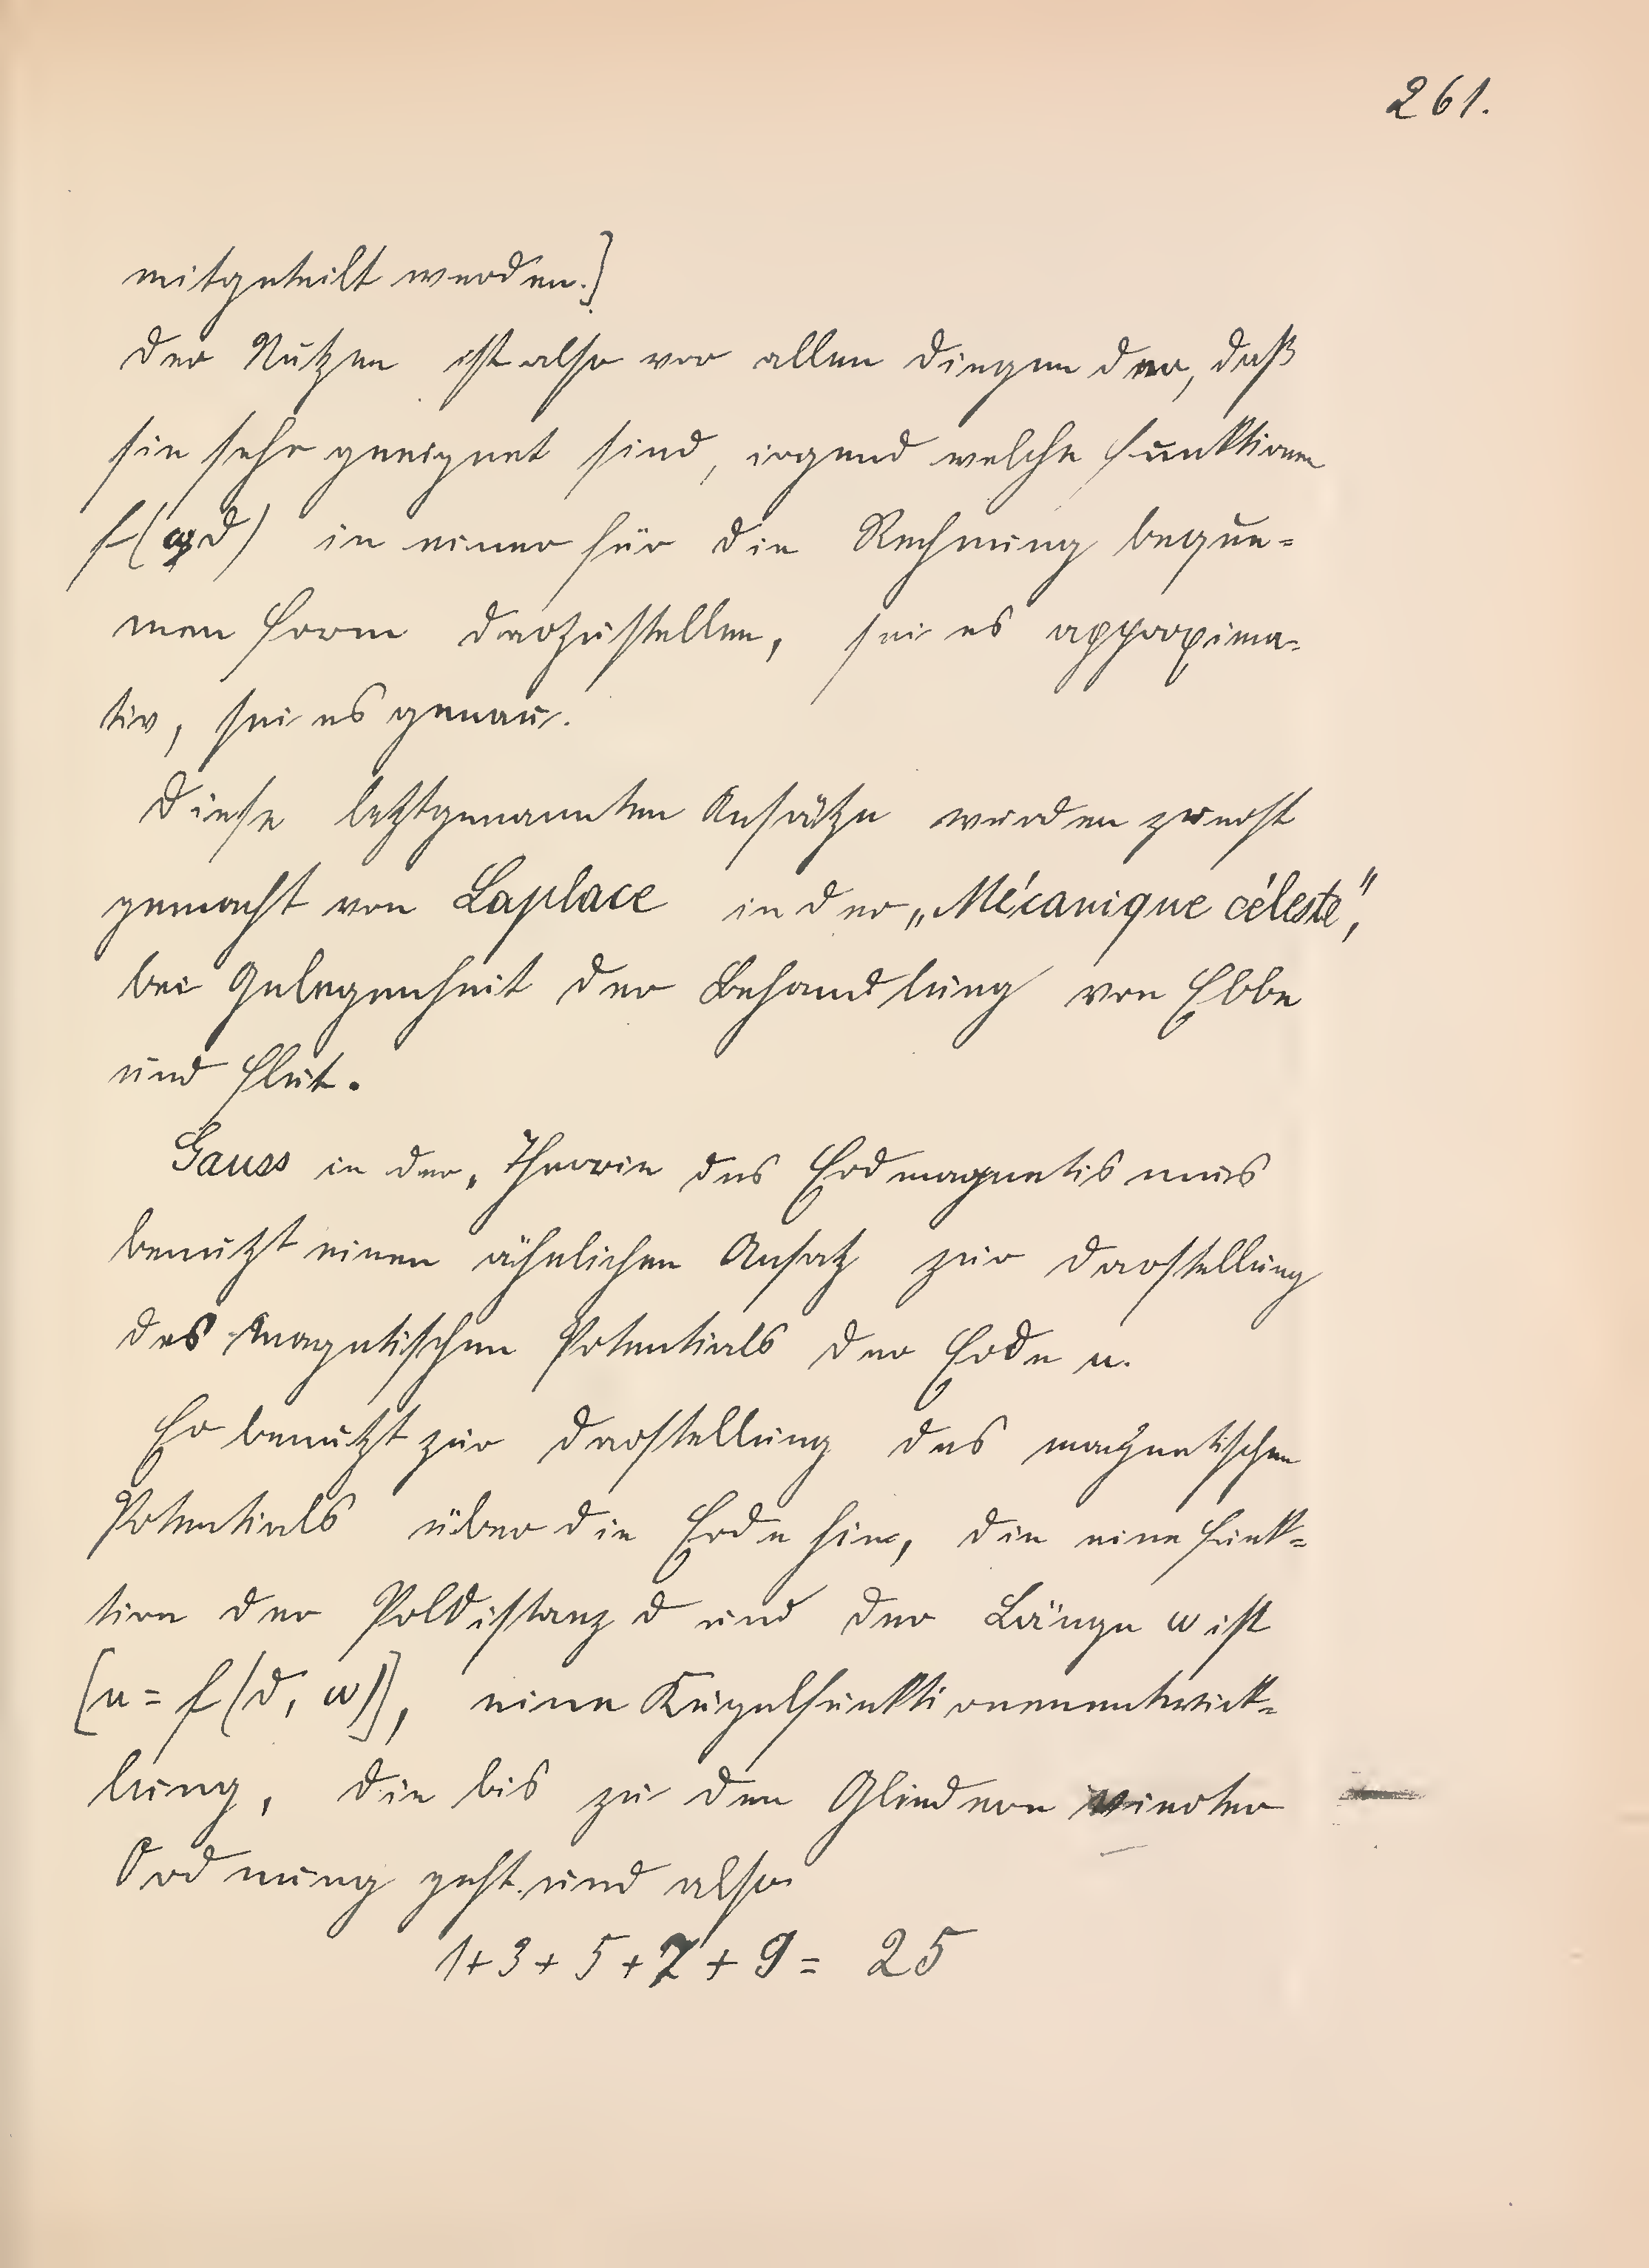 261.
mitgeteilt werden.]
Der Nutzen ist also vor allen Dingen der, daß
sie sehr geeignet sind, irgend welche Funktionen
in einer für die Rechnung beque-
men Form darzustellen, sei es approxima-
tiv, sei es genau.
Diese letztgenannten Ansätze wurden zuerst
gemacht von Laplace in der „Mécanique céleste",
bei Gelegenheit der Behandlung von Ebbe
und Flut.
Gauss in der „Theorie des Erdmagnetismus
benutzt einen ähnlichen Ansatz zur Darstellung
des magnetischen Potentials der Erde u.
Er benutzt zur Darstellung des magnetischen
Potentials über die Erde hin, die eine Funk-
tion der Poldistanz d und der Länge ω ist
[u = f(d, ω)], eine Kugelfunktionenentwick-
lung, die bis zu den Gliedern vierter
Ordnung geht und also
1+3+5+7+9= 25